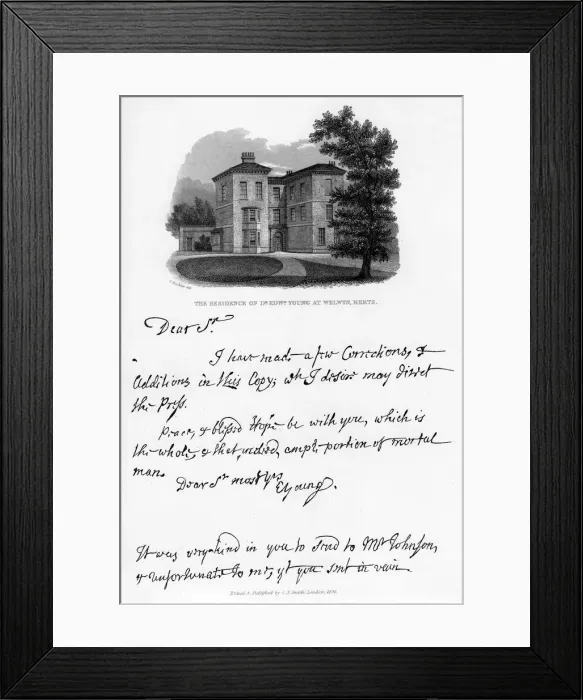 THE RESIDENCE OF Dr EDWd YOUNG AT WELWYN, HERTS.
Dear Sr
I have made a few Corrections, &
Additions in this Copy; wh I desire may direct
the Press.
Peace, & blessed Hope be with you, which is
the whole, & that, indeed, ample portion of mortal
man.
Dear Sr most yrs
EYoung.
It was very kind in you to send to Mr Johnson,
& unfortunate to me, yt you sent in vain
Published by C. J. Smith, London,